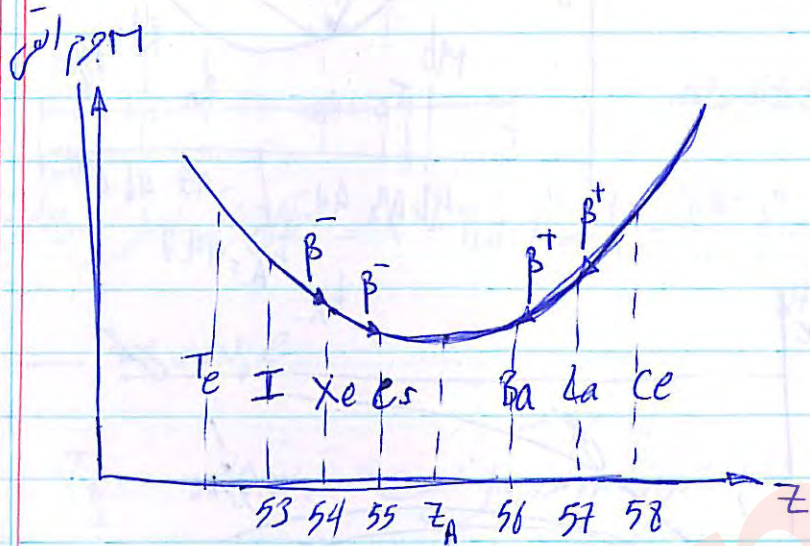 β⁻ β⁻ β⁺ β⁺
Te I Xe Cs Ba La Ce
53 54 55 Z_A 56 57 58 Z